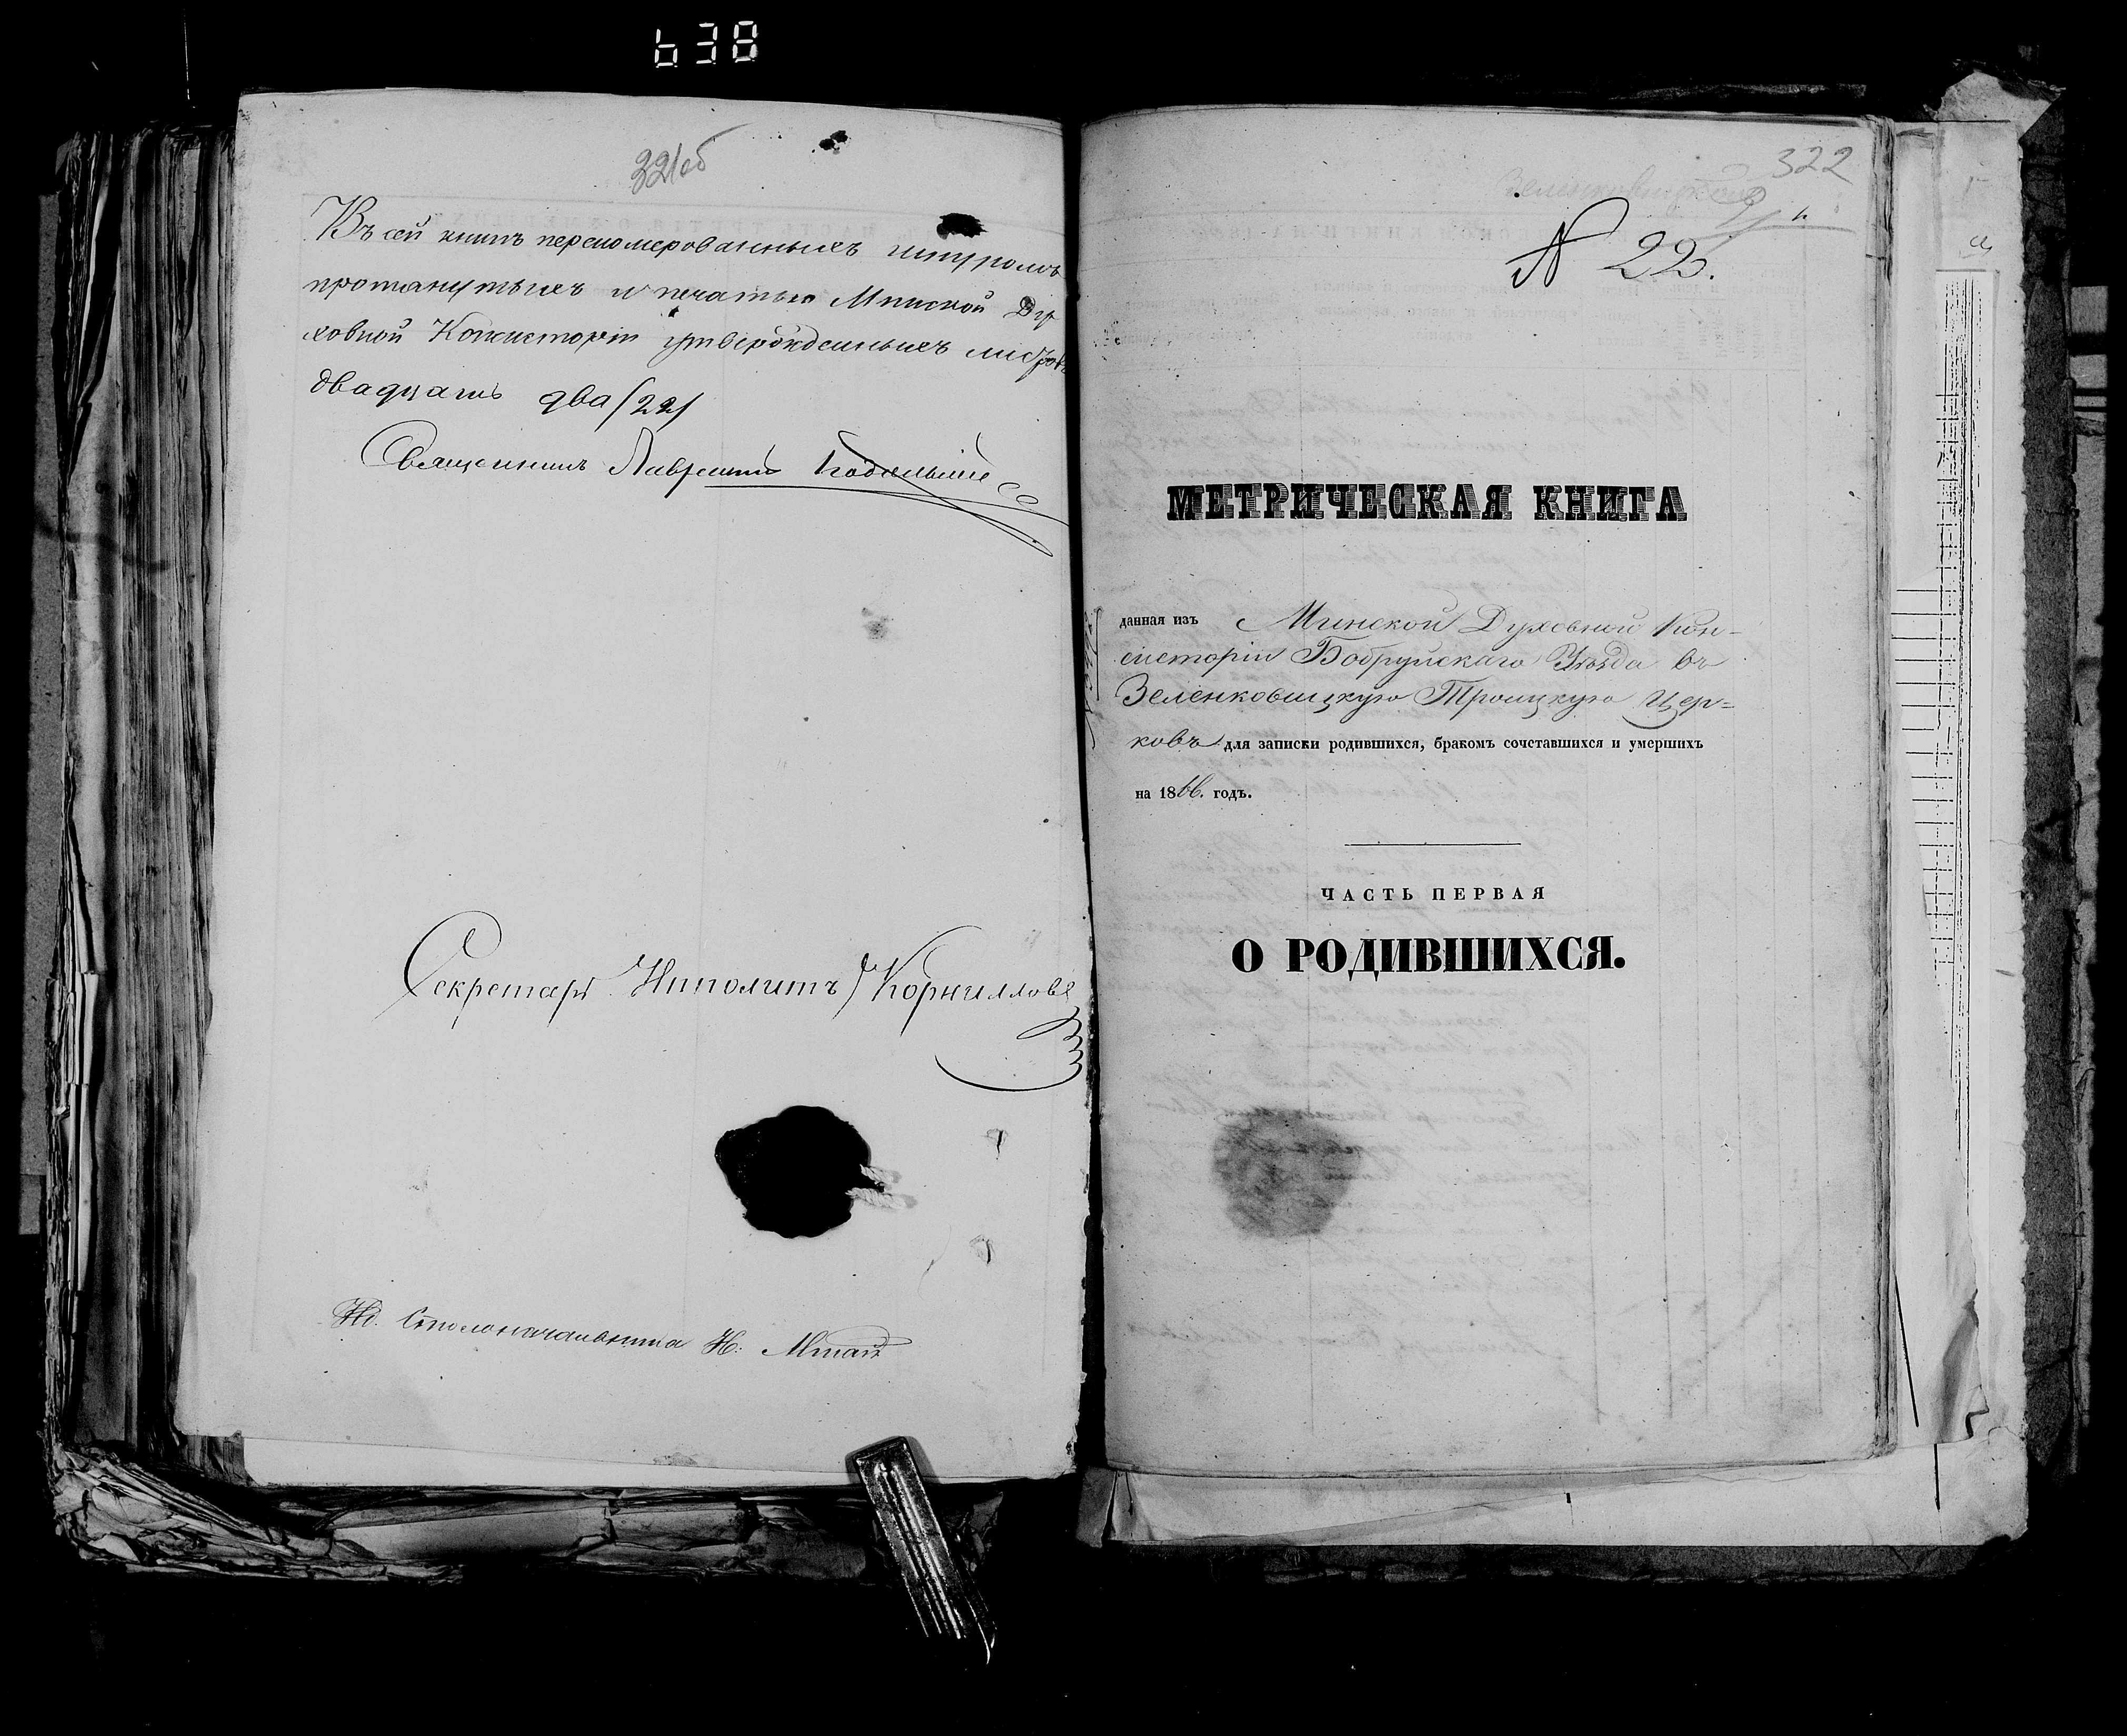 638
321об
Въ сей книгѣ переномерованныхъ шнуромъ
протянутыхъ и печатью Минской Ду
ховной Консисторіи утвержденныхъ листовъ
двадцать два /22/
Священникъ Лаврентій
Секретарь Ипполитъ Корниловъ
Ид. Столоначальника Н.
322
N 22.
МЕТРИЧЕСКАЯ КНИГА
данная изъ Минской Духовной Кон-
систоріи Бобруйскаго Уѣзда въ
Зеленковицкую Троицкую Цер=
ковь для записки родившихся, бракомъ сочетавшихся и умершихъ
на 1866. годъ.
ЧАСТЬ ПЕРВАЯ
О РОДИВШИХСЯ.